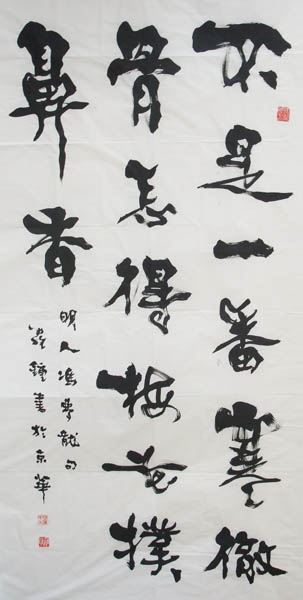 不是一番寒徹
骨怎得梅花撲
鼻香
明人馮夢龍句
鐘書於京華